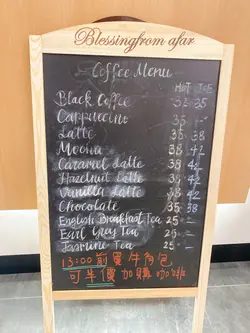 Blessing from afar
Coffee Menu
HOT ICE
Black Coffee 32 35
Cappuccino 35 -
Latte 35 38
Mocha 38 42
Caramel Latte 38 42
Hazelnut Latte 38 42
Vanilla Latte 38 42
Chocolate 35 38
English Breakfast Tea 25 -
Earl Grey Tea 25 -
Jasmine Tea 25 -
13:00前買牛角包
可半價加購咖啡